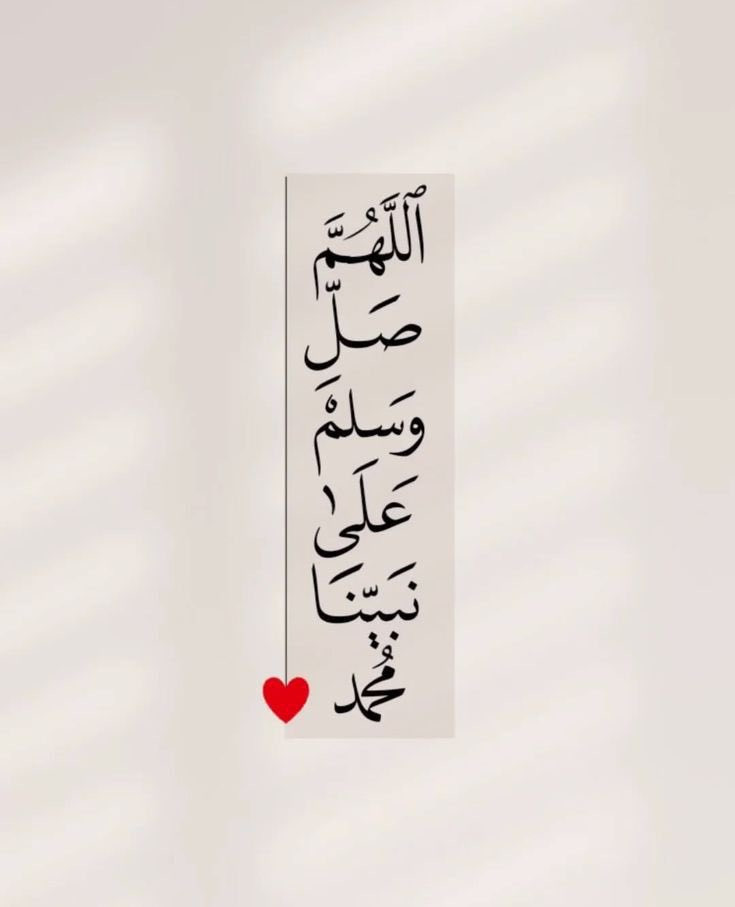 ٱللَّهُمَّ
صَلِّ
وَسَلمْ
عَلَى
نَبِيّنَا
مُحمد